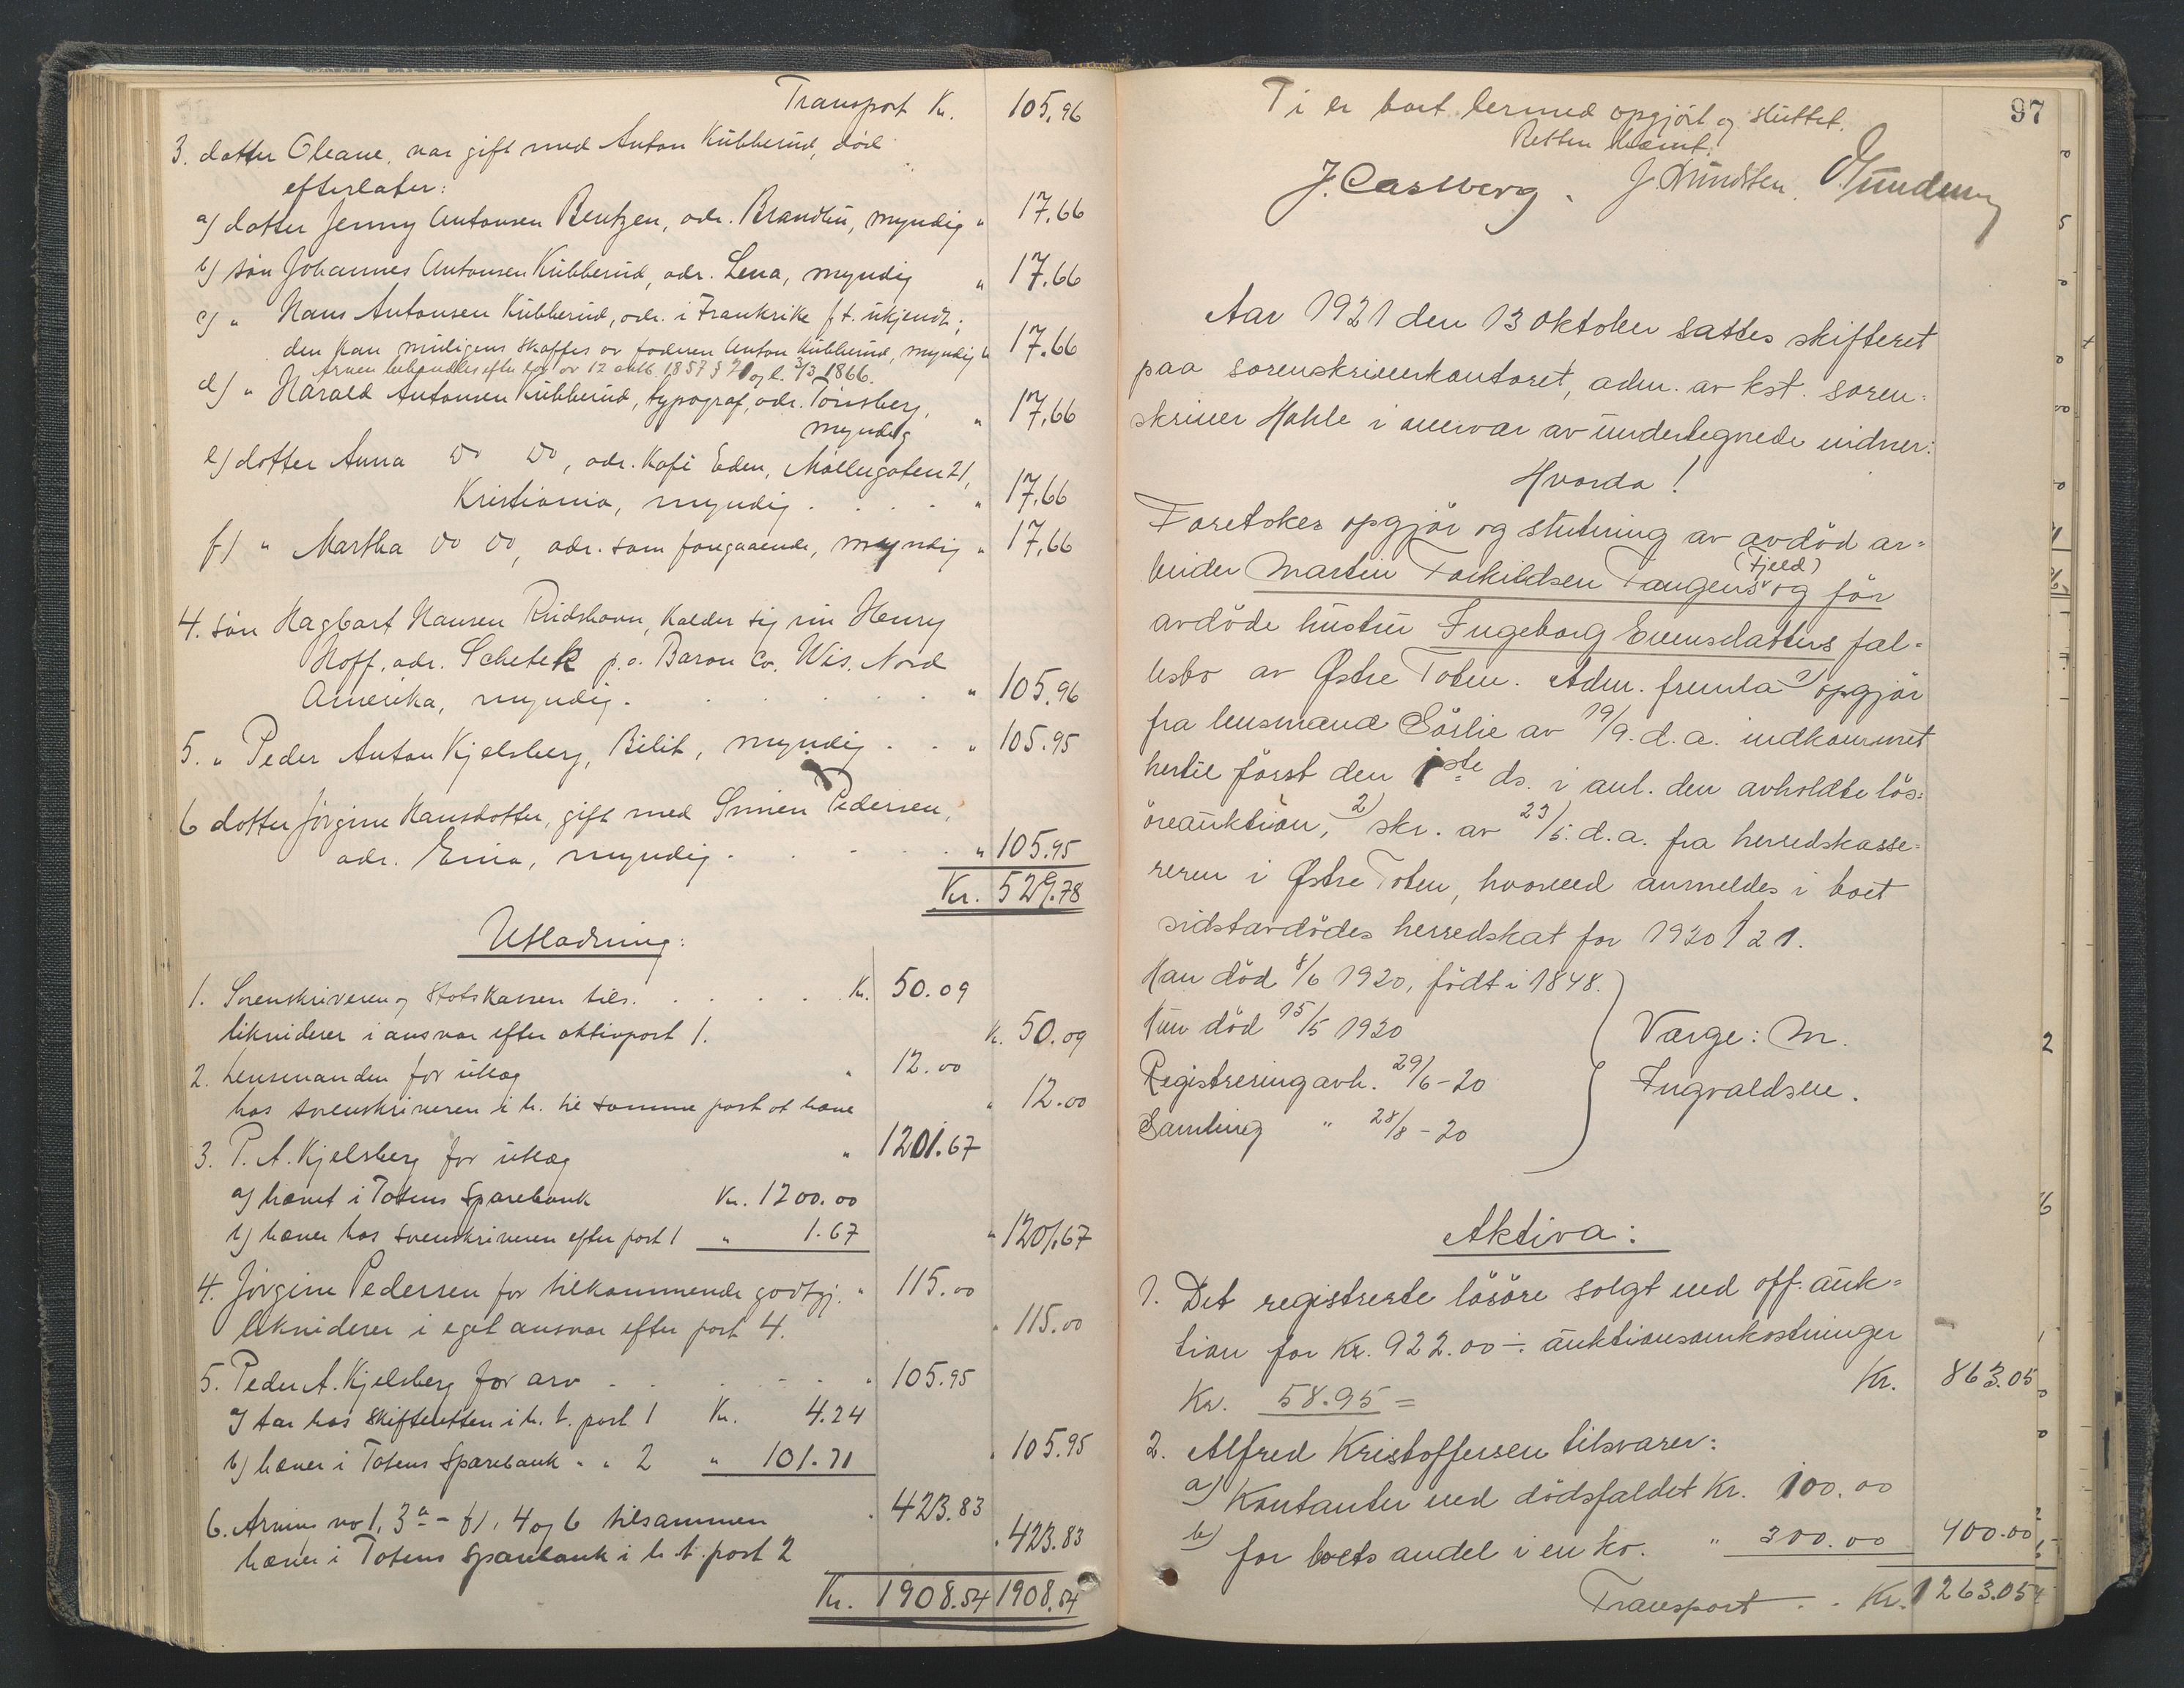 Transport Kr. 105,96
3. datter Oleane, var gift med Anton Kübberud, död
efterlater:
a) datter Jenny Antonsen Bentzen, adr. Brandbu, myndig " 17.66
b) sön Johannes Antonsen Kübberud, adr. Lena, myndig " 17.66
c) " Hans Antonsen Kübberud, adr. i Frankrike f.t. ukjendt;
den kan muligens skaffes av faderen Anton Kübberud, myndig " 17.66
Arven behandles efter lov av 12 oktb. 1857 § 21 og l. 3/3 1866.
d) " Harald Antonsen Kübberud, typograf, adr. Tönsberg,
myndig " 17.66
e) datter Anna do do, adr. Kafe Eden, Möllergaten 21,
Kristiania, myndig . . . . " 17.66
f) " Martha do do, adr. som foregaaende, myndig " 17.66
4. sön Hagbart Hansen Rudshavn, kalder sig nu Henry
Hoff, adr. Schetek p.o. Baron Co. Wis. Nord
Amerika, myndig . . . . . . " 105.96
5. " Peder Anton Kjelsberg, Bilit, myndig . . " 105.95
6 datter Jörgine Hansdatter, gift med Simen Pedersen,
adr. Eina, myndig . . . . " 105.95
Kr. 529.78
Utlodning:
1. Sorenskriveren og Statskassen tils. . . . . . Kr. 50.09
likviderer i ansvar efter aktivpost 1. Kr. 50.09
2. Lensmanden for utlæg " 12.00
hos sorenskriveren i h. til samme post at hæve " 12.00
3. P. A. Kjelsberg for utlæg " 1201.67
a) hævet i Totens Sparebank Kr. 1200.00
b) hæver hos sorenskriveren efter post 1 " 1.67 " 1201.67
4. Jörgine Pedersen for tilkommende godtgj. " 115.00
likviderer i eget ansvar efter post 4. " 115.00
5. Peder A. Kjelsberg for arv . . . . . " 105.95
a) tar hos skifteretten i h. t. post 1 Kr. 4.24
b) hæver i Totens Sparebank " " 2 " 101.71 " 105.95
6. Arving no 1, 3 a - f), 4 og 6 tilsammen " 423.83
hæver i Totens Sparebank i h. t. post 2 " 423.83
Kr. 1908.54 1908.54
97
Ti er boet hermed opgjört og sluttet.
Retten hævet.
J. Castberg. J. Sundsten.
Aar 1921 den 13 oktober sattes skifteret
paa sorenskriverkontoret, adm. av kst. soren-
skriver Hohle i overvær av undertegnede vidner:
Hvorda!
Foretokes opgjör og slutning av avdöd ar-
beider Martin Torkildsen Tangens (Fjeld) og för
avdöde hustru Ingeborg Evensdatters fæl-
lesbo av Østre Toten. Adm. fremla 1) opgjör
fra lensmand Sörlie av 19/9. d. a. indkommet
hertil först den 1ste ds. i anl. den avholdte lös-
öreauktion, 2) skr. av 23/5. d. a. fra herredskasse-
reren i Østre Toten, hvorved anmeldes i boet
sidstavdödes herredskat for 1920/21.
Han död 8/6 1920, födt i 1848.
Hun död 15/5 1920
Værge: M.
Registrering avh. 29/6 - 20
Ingvaldsen.
Samling " 28/8 - 20
Aktiva:
1. Det registrerte lösöre solgt ved off. auk-
tion for Kr. 922.00 ÷ auktionsomkostninger
Kr. 58.95 = Kr. 863.05
2. Alfred Kristoffersen tilsvarer:
a) Kontanter ved dödsfaldet Kr. 100.00
b) for boets andel i en ko. " 300.00 400.00
Transport . . Kr. 1263.05